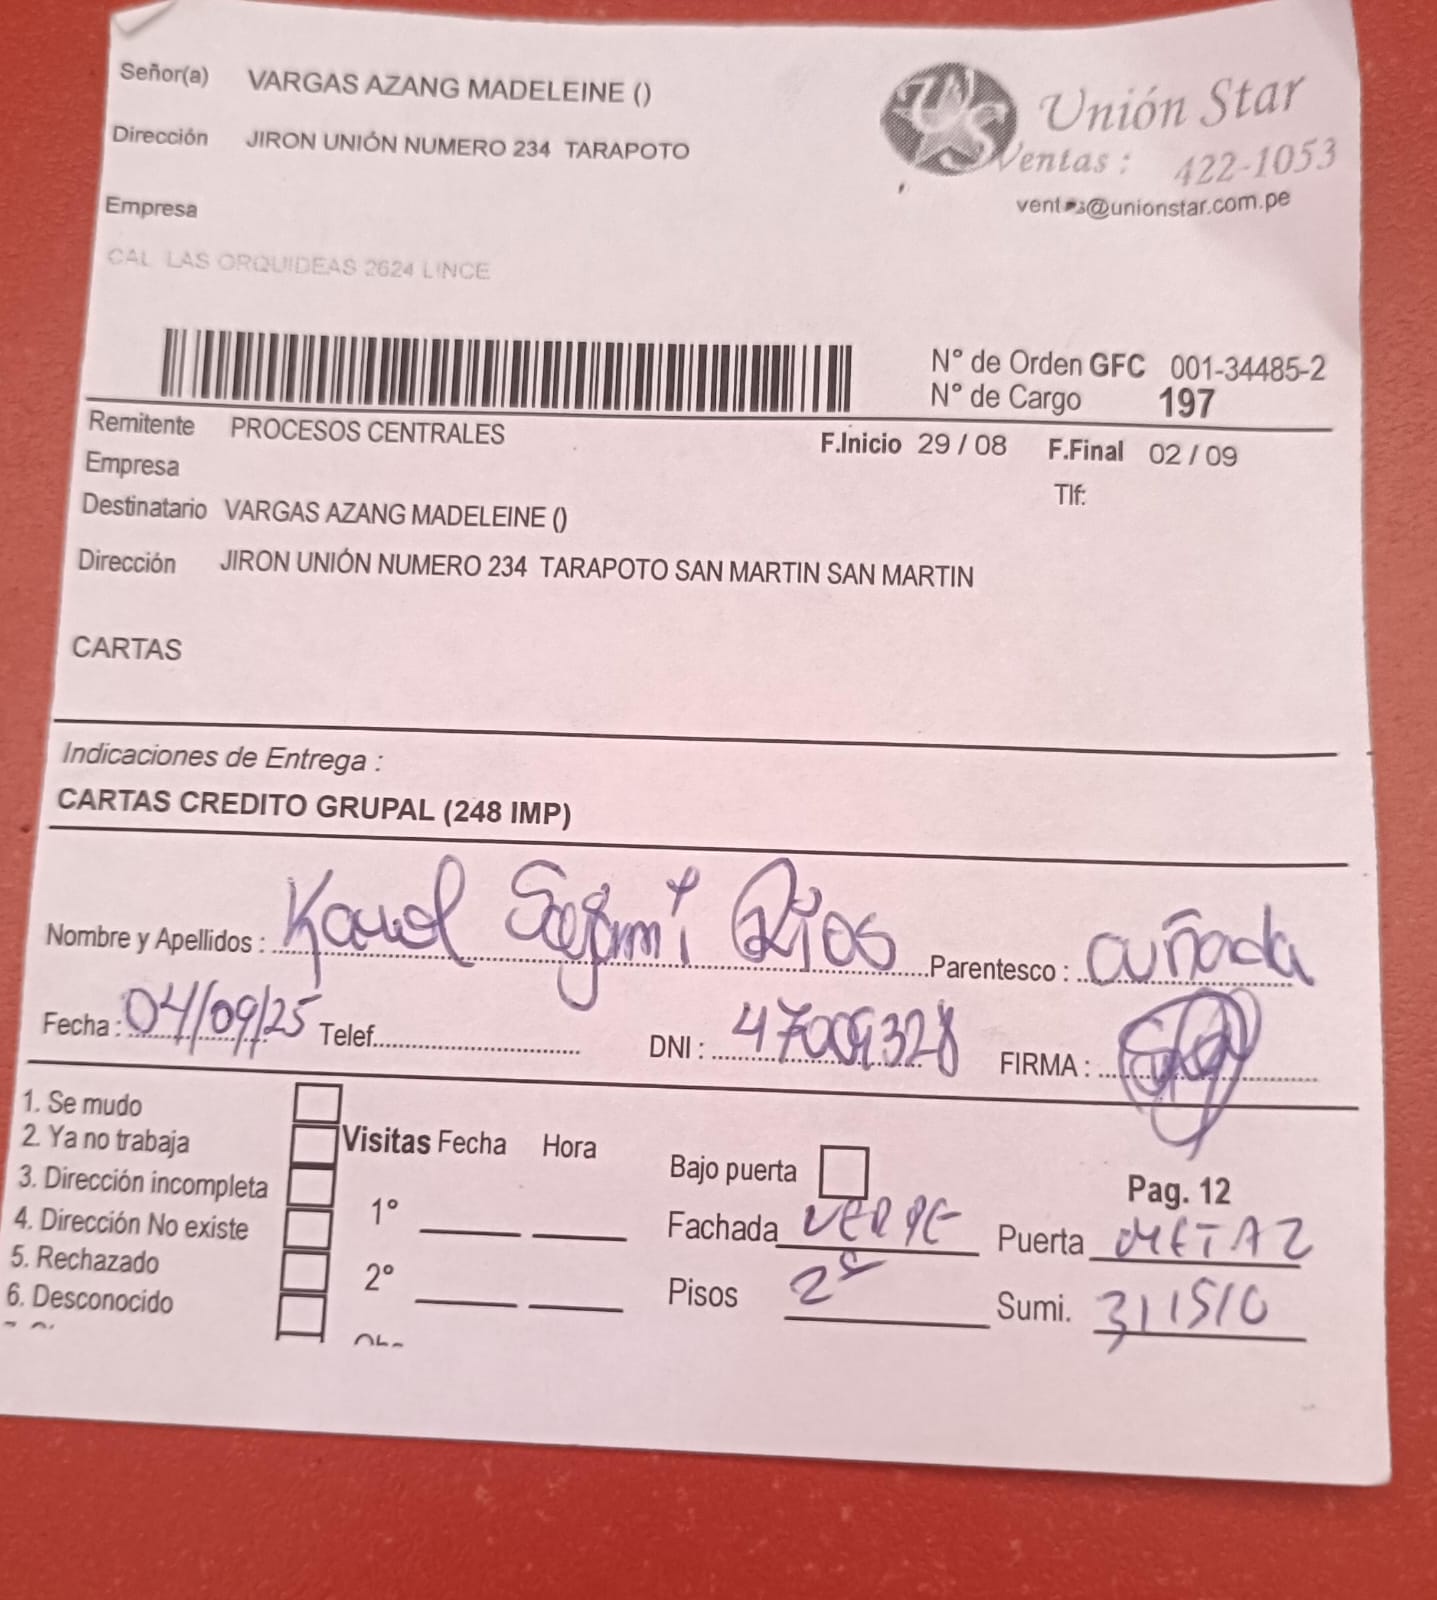 Señor(a) VARGAS AZANG MADELEINE ()
Dirección JIRON UNIÓN NUMERO 234 TARAPOTO
Unión Star
Ventas : 422-1053
ventas@unionstar.com.pe
Empresa
CAL LAS ORQUIDEAS 2624 LINCE
N° de Orden GFC 001-34485-2
N° de Cargo 197
Remitente PROCESOS CENTRALES
F.Inicio 29 / 08 F.Final 02 / 09
Empresa
Tlf:
Destinatario VARGAS AZANG MADELEINE ()
Dirección JIRON UNIÓN NUMERO 234 TARAPOTO SAN MARTIN SAN MARTIN
CARTAS
Indicaciones de Entrega :
CARTAS CREDITO GRUPAL (248 IMP)
Nombre y Apellidos : Karol Sajami Rios Parentesco : cuñada
Fecha : 04/09/25 Telef. DNI : 47009328 FIRMA :
1. Se mudo
2. Ya no trabaja
3. Dirección incompleta
4. Dirección No existe
5. Rechazado
6. Desconocido
Visitas Fecha Hora
1°
2°
Bajo puerta
Pag. 12
Fachada VERDE Puerta METAL
Pisos 2 Sumi. 311510